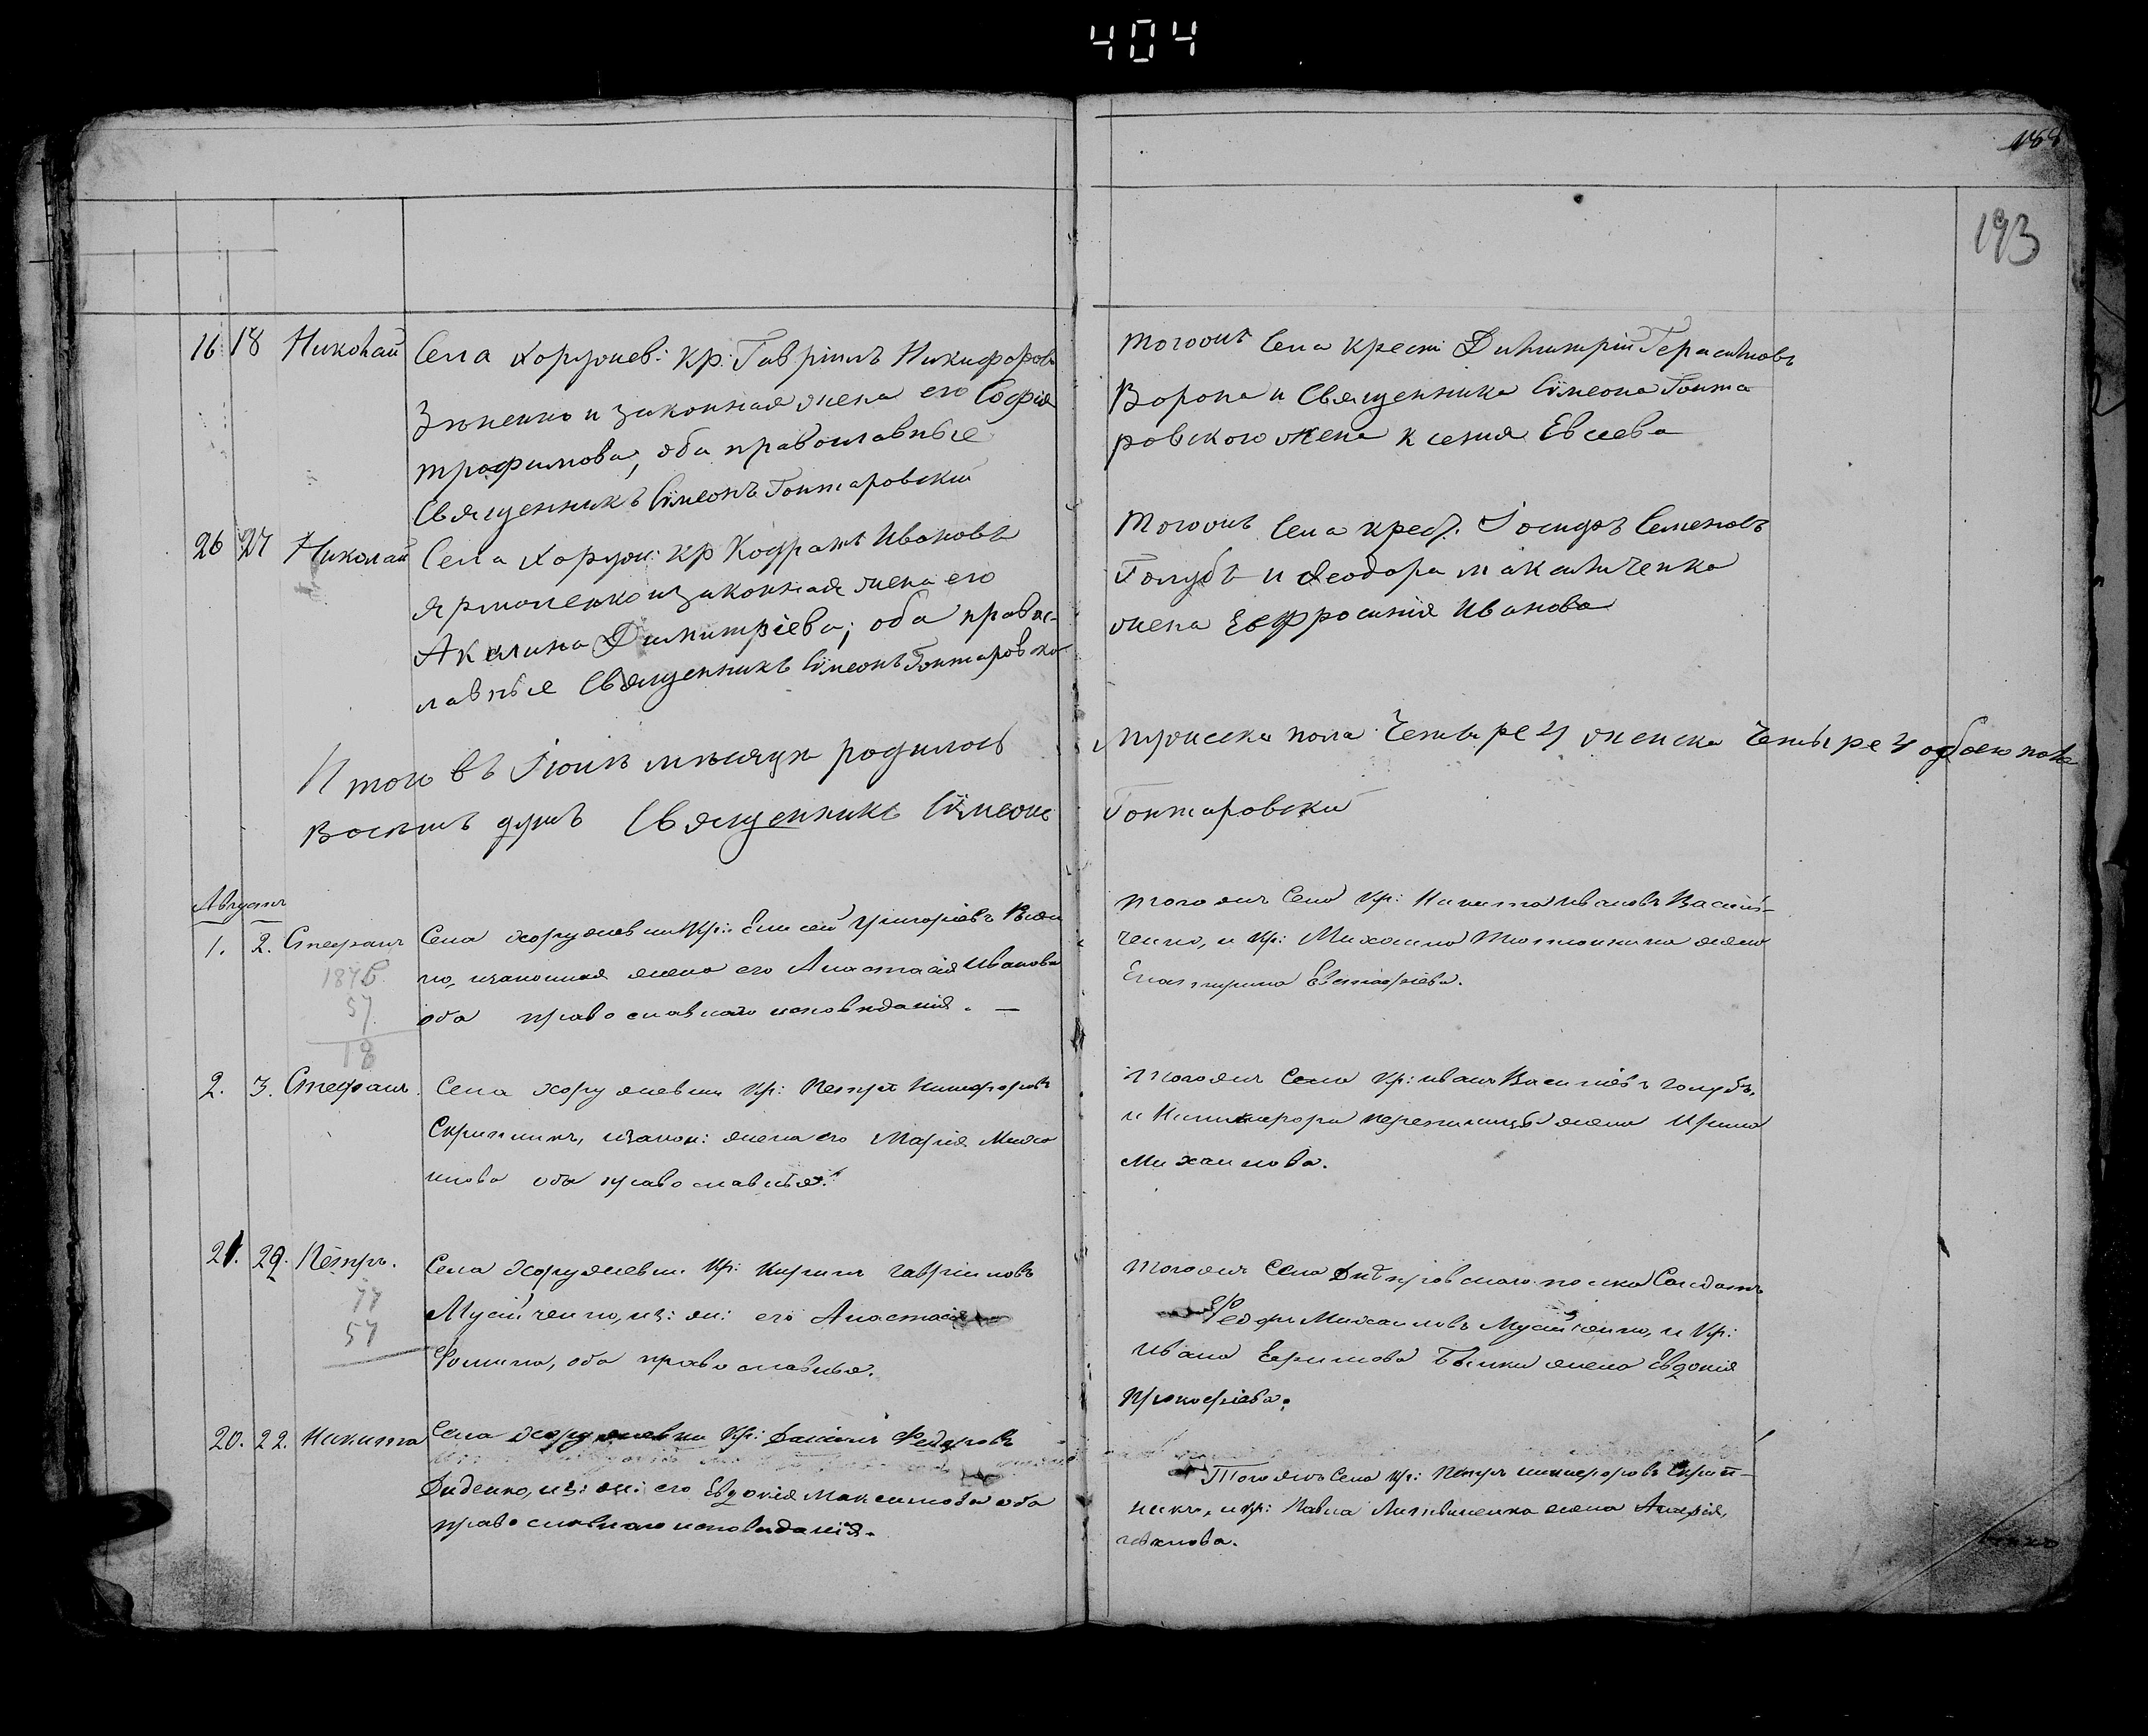 404
188
193
16 18 Николай Села Хоружев: кр: Гавріилъ Никифоровъ
Зѣненко и законная жена его Софія
трофимова, оба православные
Священникъ Сѵмеонъ Гонтаровскій
тогожъ Села крест: Димитрій Герасимовъ
Ворона и Священника Сѵмеона Гонта
ровского жена ксенія Евсеева
26 27 Николай Села Хоруж: кр Кодратъ Ивановъ
Ярмоленко и законная жена его
Акилина Димитріева; оба правос-
лавные Священникъ Сѵмеонъ Гонтаровскі
тогожъ Села крест. Іосифъ Семеновъ
Голубъ и Феодора Максимченка
жена Евфросинія Иванова
Итого въ Іюлѣ мѣсяцѣ родилось мужеска пола Четыре 4 женска Четыре 4 обоего пола
Восѣмъ душъ Священникъ Сѵмеонъ Гонтаровскій
Августъ
1. 2. Стефанъ Села хоружевки Кр: Елисей Григоріевъ
но, изаконная жена его Анастасія Иванова
оба православнаго исповѣданія. —
1875
57
18
тогожъ Села Кр: Никита Ивановъ Василь-
ченко, и Кр: Михаила жена
Екатерина Евстафіева.
2. 3. Стефанъ. Села хоружевки Кр: Петръ Никифоровъ
Скрипникъ, изакон: жена его Марія Михаи
лова оба православныя.
тогожъ Села Кр: иванъ Василіевъ голубъ,
и Никифора жена Ирина
Михаилова.
21. 29. Петръ. Села Хоружевки. Кр: Кирилъ гавріиловъ
Мусійченко, из: жи: его Анастасія
Фомина, оба православныя.
77
57
тогожъ Села Днѣпровскаго полка Солдатъ
Федоръ Михаиловъ Мусійченко, и Кр:
ивана Ефимова Бычка жена Евдокія
Прокофіева.
20. 22. Никита Села Хоружевки Кр: Даніилъ Федоровъ
Диденко, из: жи: его Евдокія Максимова оба
православнаго исповѣданія.
Тогожъ Села кр: Петръ никифоровъ Скрип-
никъ, и кр: Павла Литвиненка жена